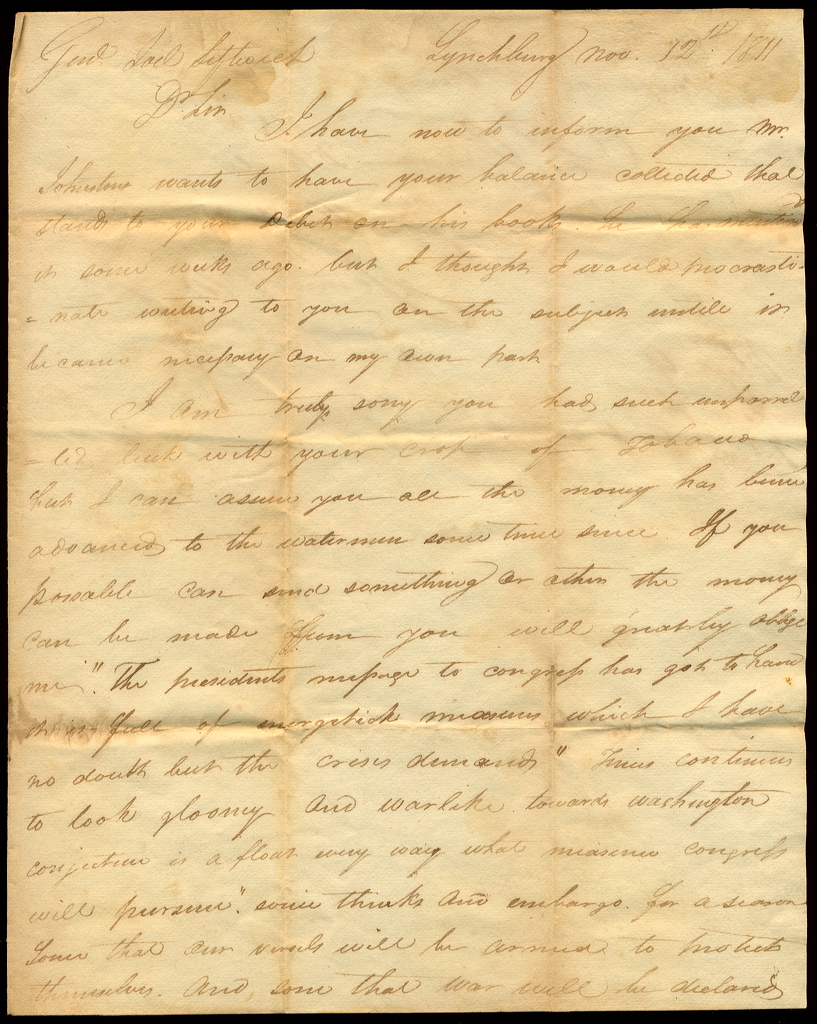 Genl Joel Leftwich Lynchburg Nov. 12th 1811
Dr Sir
I have now to inform you Mr.
Johnston wants to have your balance collected that
stands to your Debit on his books. he has mention
it some weeks ago. but I thought I would procrasti-
= nate writing to you on the subject untile it
became necessary on my own part
I am truly sorry you had such unparral
= led luck with your crop of Tobacco
but I can assure you all the money has been
advanced to the watermen some time since If you
possable can send something or other the money
can be made from you will greatly oblige
me". The presidents message to congress has got to hand
it is full of energetick measures which I have
no doubt but the crises demands" Times continues
to look gloomy and warlike towards washington
conjecture is a float every way what measure congress
will pursue". some thinks and embargo. for a season
Some that our vessels will be armed to protect
themselves. And some that war will be declared